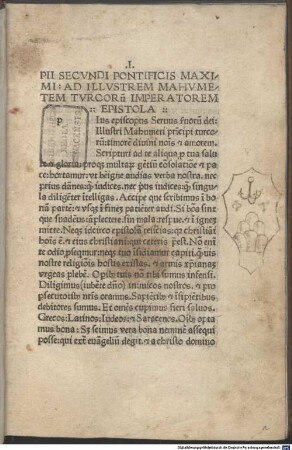 .I.
PII SECVNDI PONTIFICIS MAXI-
MI: AD ILLVSTREM MAHVME-
TEM TVRCORṼ IMPERATOREM
EPISTOLA
P
Ius episcopus Seruus seruoṛ dei:
Illustri Mahumeti prĩcipi turco-
rũ: timorẽ diuini nois & amorem.
Scripturi ad te aliqua ꝓ tua salu-
te & gloria: ꝓq; multaꝝ gẽtiũ cõsolatiõe & pa-
ce: hortamur: ut benigne audias uerba nostra. nec
prius dãnes: ꝙ iudices. nec prius iudices: ꝙ singu-
la diligẽter ĩtelligas. Accipe que scribimus ĩ bo-
nã partẽ: & usq; ĩ finẽ patiẽter audi. Si bõa sint
que suadẽus: cõplectere. sin mala respue. & igni
mitte. Neq; idcirco epistolã reiicias: qr christiani
hois ẽ: & eius christiani: qui ceteris p̃est. Nõ enĩ
te odio ꝓsequimur: neq; tuo ĩsidiamur capiti. qui
nostre religiõis hostis existas. & armis xp̃ianaꝫ
urgeas plebẽ. Opib' tuis nõ tibi sumus infensi.
Diligimus (iubẽte dño) inimicos nostros. & pro
ꝓsecutorib' nris oramus. Sapiẽtib' & ĩsipiẽtibus
debitores sumus. Et omẽs cupimus fieri saluos.
Grecos: Latinos: Iudeos: & Saracenos. Oib' opta
mus bona: Sꝫ scimus uera bona neminẽ assequi
posse: qui extᵃ euãgeliũ degit. & a christo domino